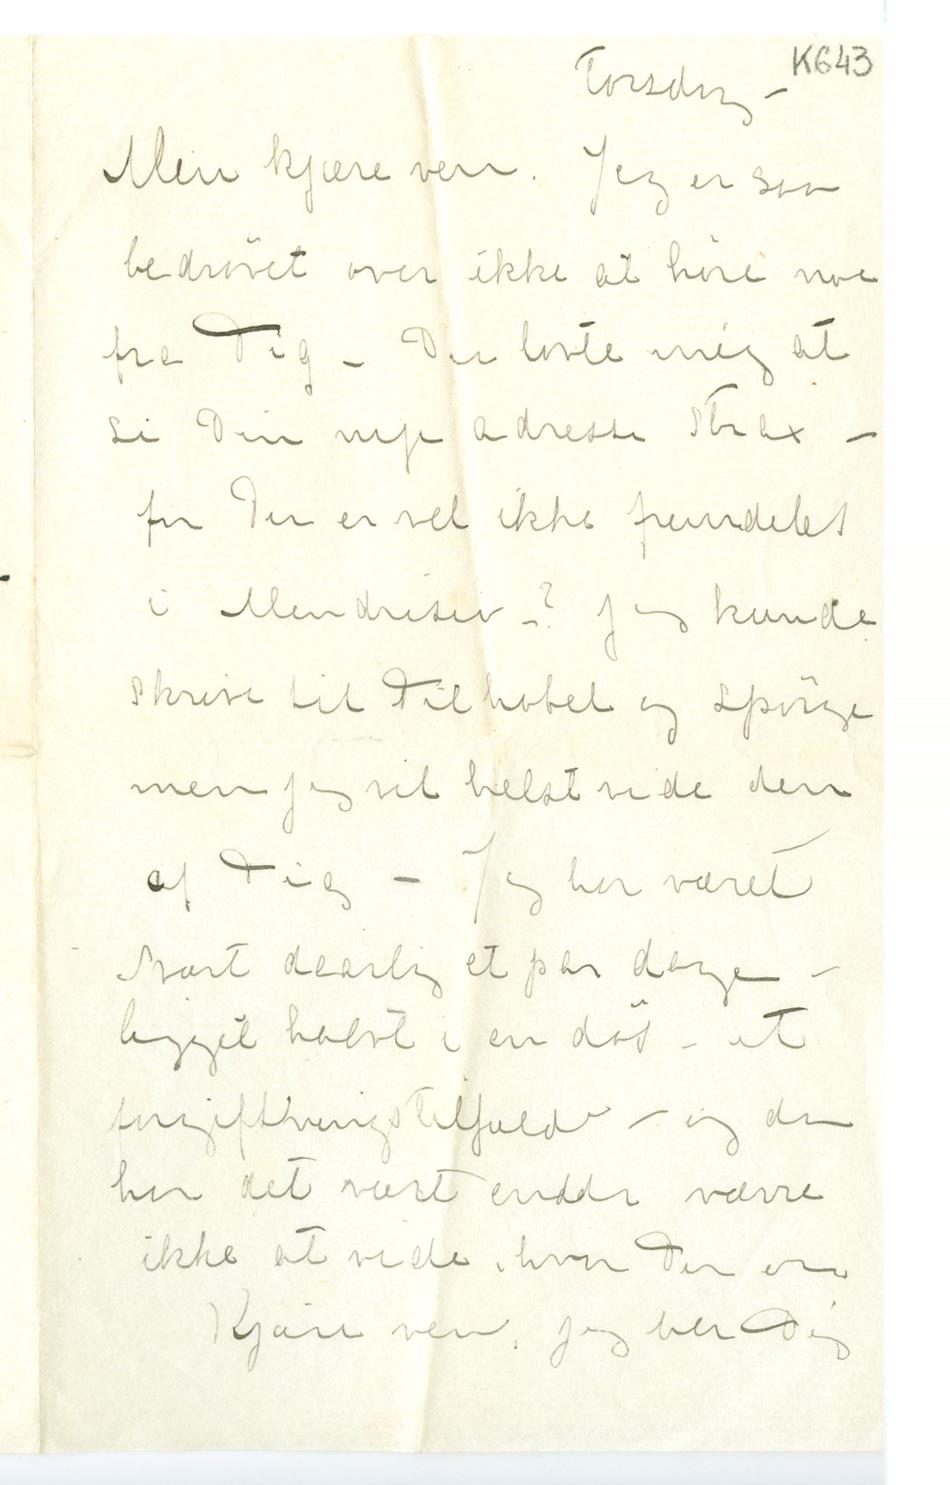 K643
Torsdag –
Min kjære ven. Jeg er saa
bedrøvet over ikke at høre noe
fra Dig – Du lovte mig at
si Din nye adresse strax –
for Du er vel ikke fremdeles
i Mendrisio –? Jeg kunde
skrive til Dit hotel og spørge
men jeg vil helst vide den
af Dig – Jeg har været
svært daarlig et par dage –
ligget halvt i en døs – et
forgiftningstilfælde – og da
har det vært endda værre
ikke at vide, hvor Du er.
Kjære ven, jeg ber Dig